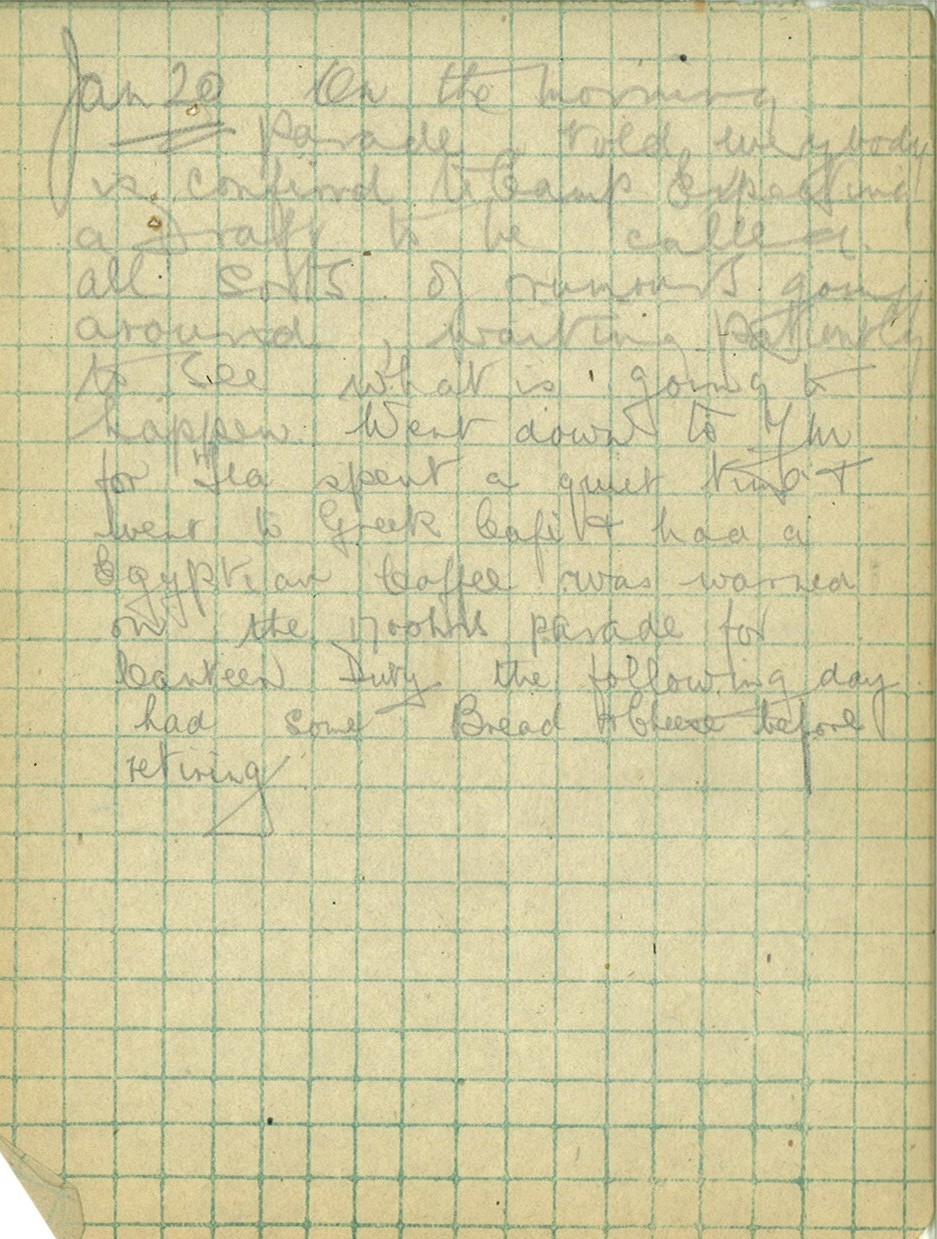 Jan 20 On the morning
parade, told everybody
is confined to Camp Expecting
a Draft to be called.
all sorts of rumours going
around, waiting patiently
to see what is going to
happen. Went down to YM
for Tea spent a quiet time &
went to Greek Cafe & had a
Egyptian Coffee was warned
on the parade for
Canteen Duty the following day
had some Bread & Cheese before
retiring